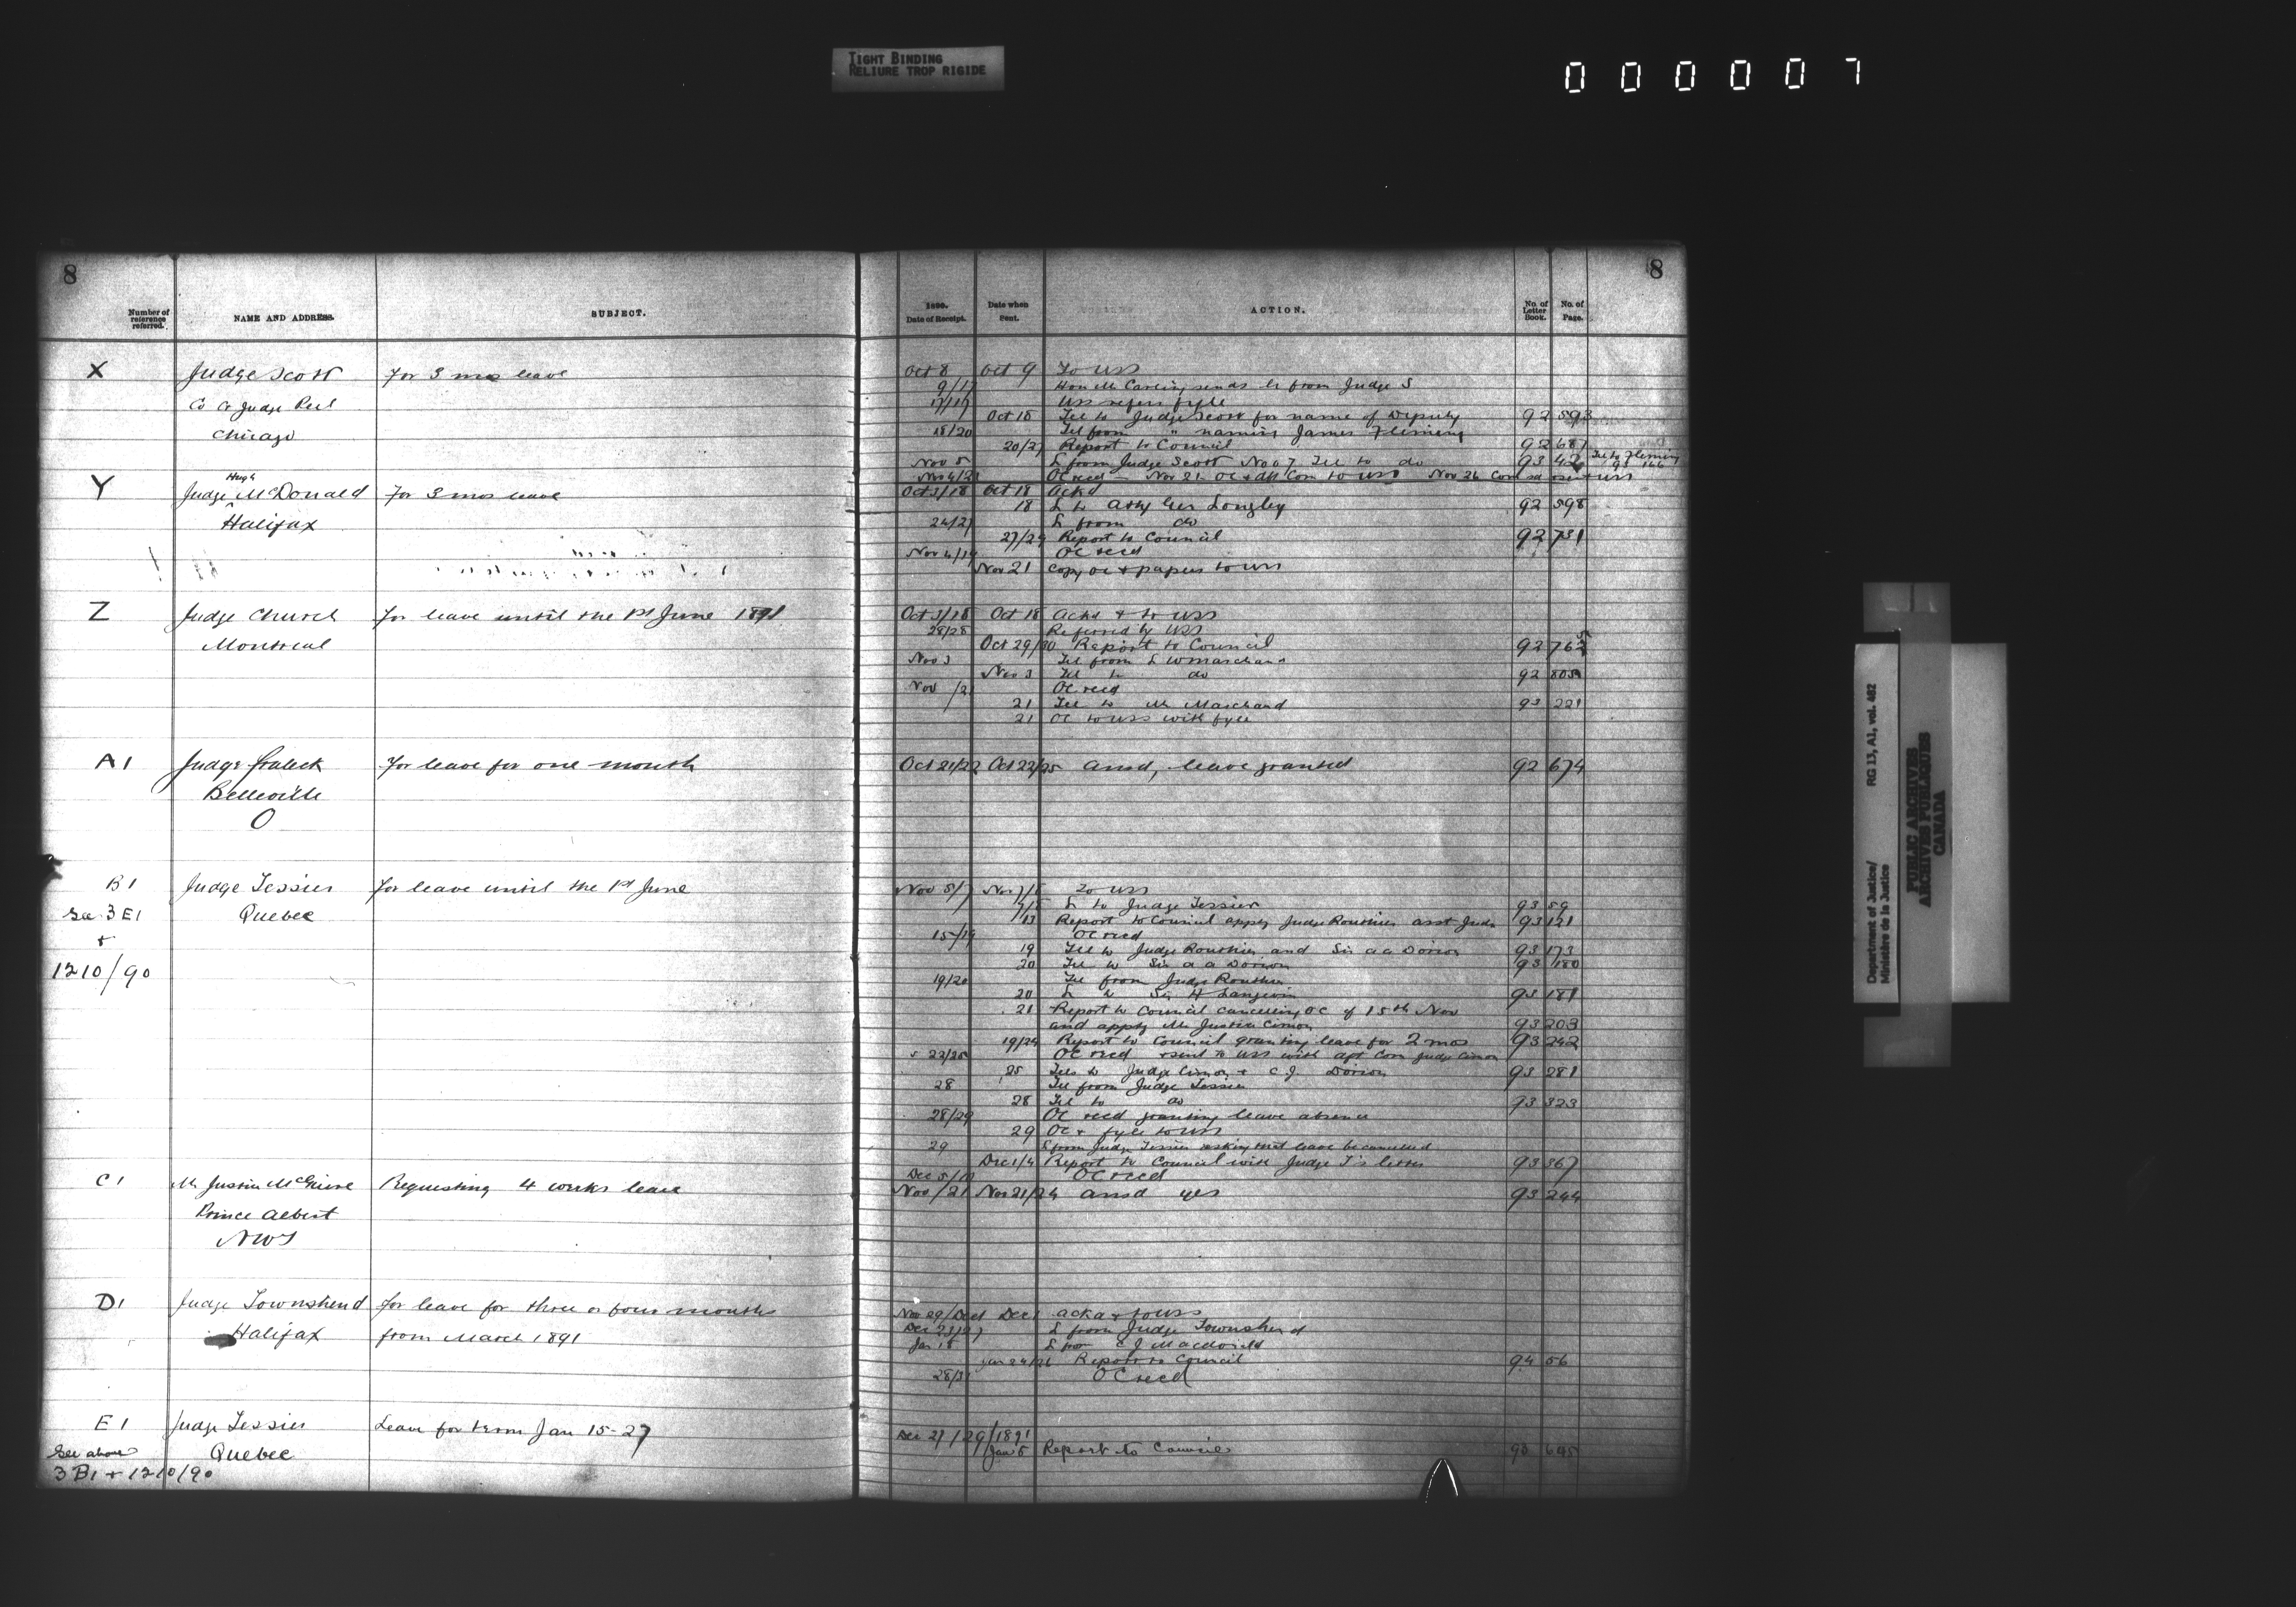 TIGHT BINDING
RELIURE TROP RIGIDE
000007
8
8
Number of reference referred.
NAME AND ADDRESS.
SUBJECT.
1890. Date of Receipt.
Date when Sent.
ACTION.
No. of Letter Book.
No. of Page.
X Judge Scott For 3 mos leave
Co Ct Judge Peel
Chicago
Oct 8 Oct 9 To USS
9/17 Hon Mr Carling sends L from Judge S
17/17 USS refers fyle
Oct 18 Tel to Judge Scott for name of Deputy 92 593
18/20 Tel from " naming James Fleming
20/27 Report to Council 92 687
Nov 5 L from Judge Scott Nov 7 Tel to do 93 42 Tel to Fleming
93 146
OC recd — Nov 21 OC & dft Com to USS Nov 26 Com
Y Hugh
Judge McDonald For 3 mos leave
Halifax
Oct 3/18 Oct 18 Ackd
18 L to Atty Gen Longley 92 598
24/27 L from do
27/29 Report to Council 92 731
Nov 4/19 OC recd
Nov 21 Copy OC & papers to USS
Z Judge Church For leave until the 1st June 1891
Montreal
Oct 3/18 Oct 18 Ackd & to USS
28/28 Referred by USS
Oct 29/30 Report to Council 92 762
Nov 3 Tel from L W Marchand
Nov 3 Tel to do 92 805
Nov /21 OC recd
21 Tel to Mr Marchand 93 221
21 OC to USS with fyle
A1 Judge Fraleck For leave for one month
Belleville
O
Oct 21/22 Oct 22/25 Ansd, leave granted 92 674
B1 Judge Tessier For leave until the 1st June
See 3 E1 Quebec
+
1210/90
Nov 5/7 Nov 7/8 To USS
7/8 L to Judge Tessier 93 59
13 Report to Council apptg Judge Routhier asst Judge 93 121
15/19 OC recd
19 Tel to Judge Routhier and Sir A A Dorion 93 173
20 Tel to Sir A A Dorion 93 180
19/20 Tel from Judge Routhier
20 L to Sir H Langevin 93 181
21 Report to Council cancelling OC of 15th Nov
and apptg Mr Justice Cimon 93 203
19/24 Report to Council granting leave for 2 mos 93 242
22/25 OC recd & sent to USS with dft Com Judge Cimon
25 Tels to Judge Cimon & C J Dorion 93 281
28 Tel from Judge Tessier
28 Tel to do 93 323
28/29 OC recd granting leave absence
29 OC & fyle to USS
29 L from Judge Tessier asking that leave be cancelled
Dec 1/4 Report to Council with Judge T's letter 93 367
Dec 5/10 OC recd
C1 Mr Justice McGuire Requesting 4 weeks leave
Prince Albert
NWT
Nov /21 Nov 21/24 Ansd yes 93 244
D1 Judge Townshend For leave for three or four months
Halifax from March 1891
Nov 29/Dec 1 Dec 1 Ackd & to USS
Dec 23/27 L from Judge Townshend
Jan 15 L from C J Macdonald
Jan 24/26 Report to Council 94 56
28/31 OC recd
E1 Judge Tessier Leave for term Jan 15-27
See above Quebec
3 B1 + 1210/90
Dec 27/29/1891
Jan 5 Report to Council 93 645
Department of Justice/
Ministère de la Justice
RG 13, A1, vol. 482
PUBLIC ARCHIVES
ARCHIVES PUBLIQUES
CANADA